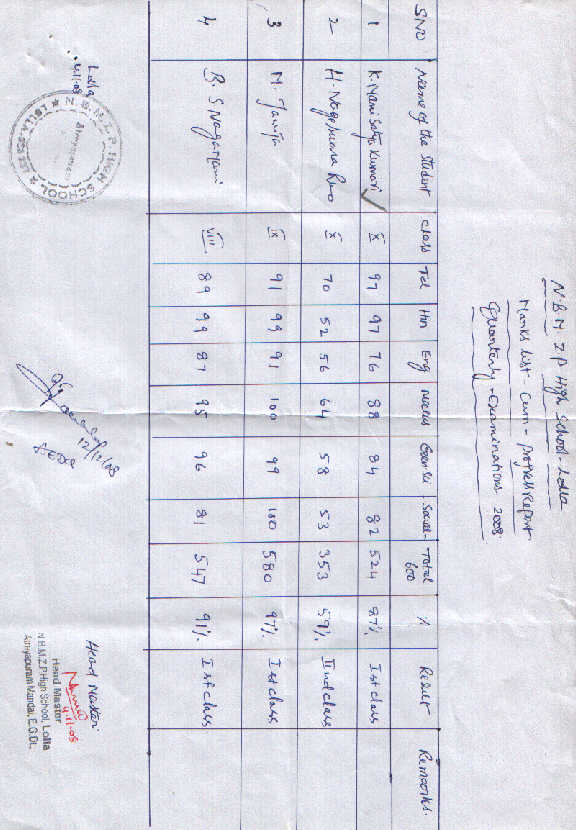 N.B.M. Z P High School - Lolla
Marks list - Cum - progress report
Quarterly - Examinations 2008
SNO Name of the Student Class Tel Hin Eng Maths Gen.Sci Social Total 600 % Result Remarks.
1 K. Mani Satya Kumari X 97 97 76 88 84 82 524 87% Ist class
2 H. Nageswara Rao X 70 52 56 64 58 53 353 59% IInd class
3 M. IX 91 99 91 100 99 100 580 97% Ist class
4 B. S Nagamani VIII 89 99 87 95 96 81 547 91% Ist class
Lolla
4.11.08
N.B.M.Z.P. HIGH SCHOOL
12/11/08
Head Master
4-11-08
Head Master
N.B.M.Z.P.High School, Lolla
Atreyapuram Mandal, E.G.Dt.